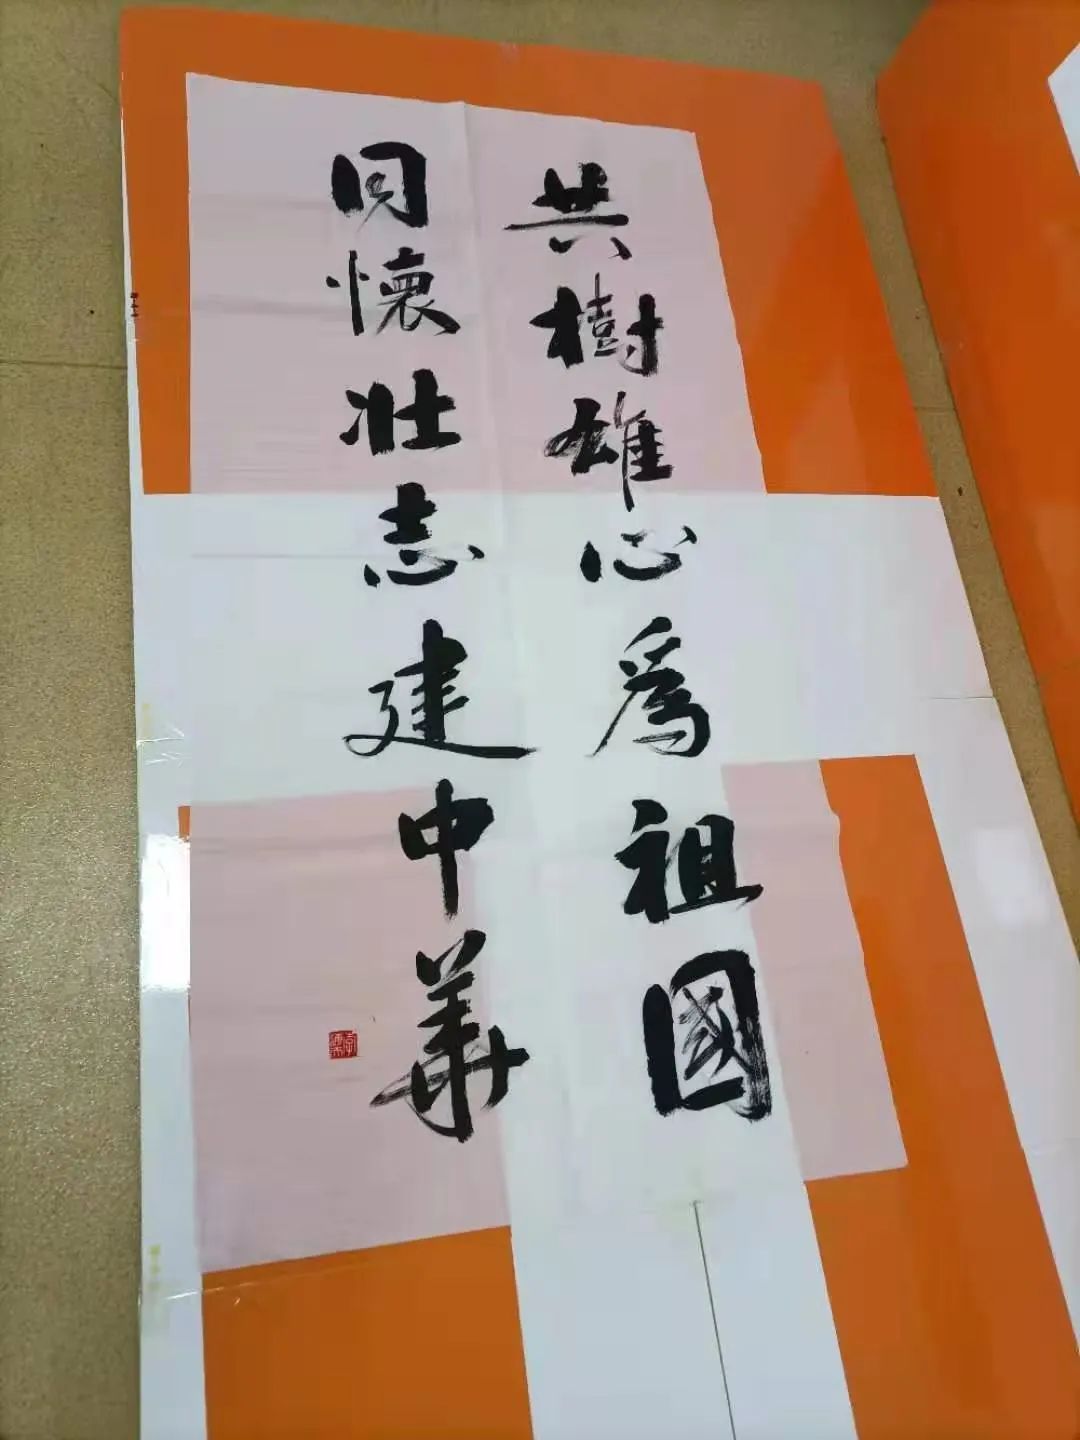 共樹雄心爲祖國
同懷壯志建中華